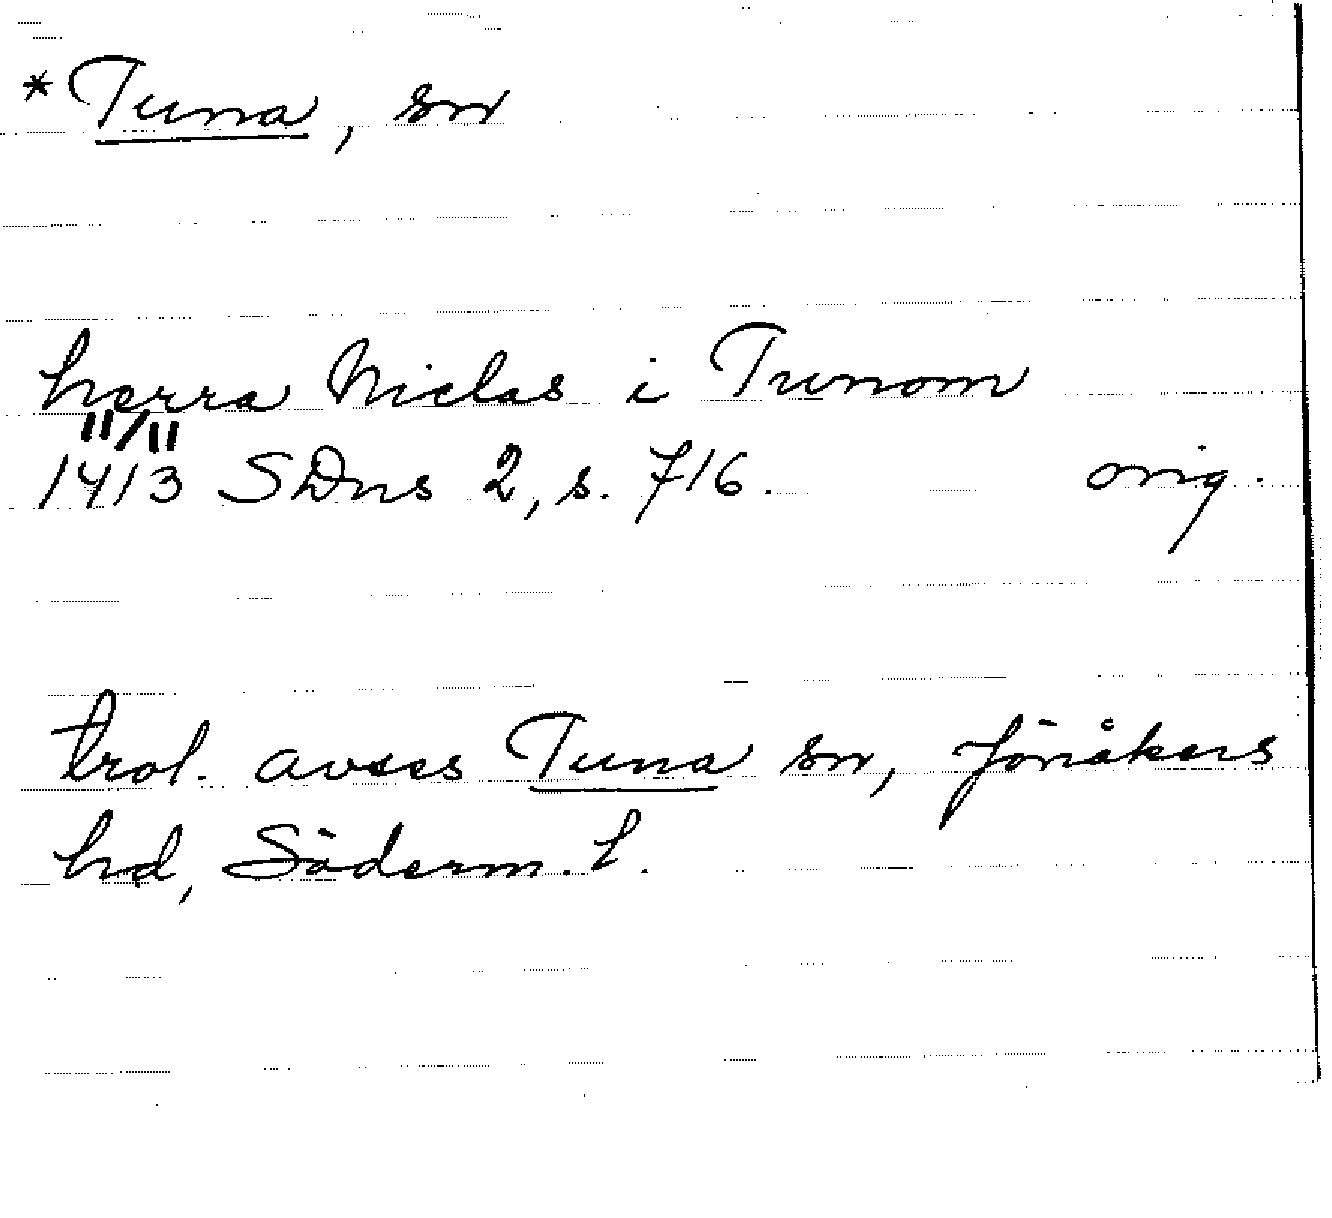 * Tuna, sn
herra Niclas i Tunom
11/11
1413 SDns 2, s. 716. orig.
trol. avses Tuna sn, Jönåkers
hd, Söderm. l.